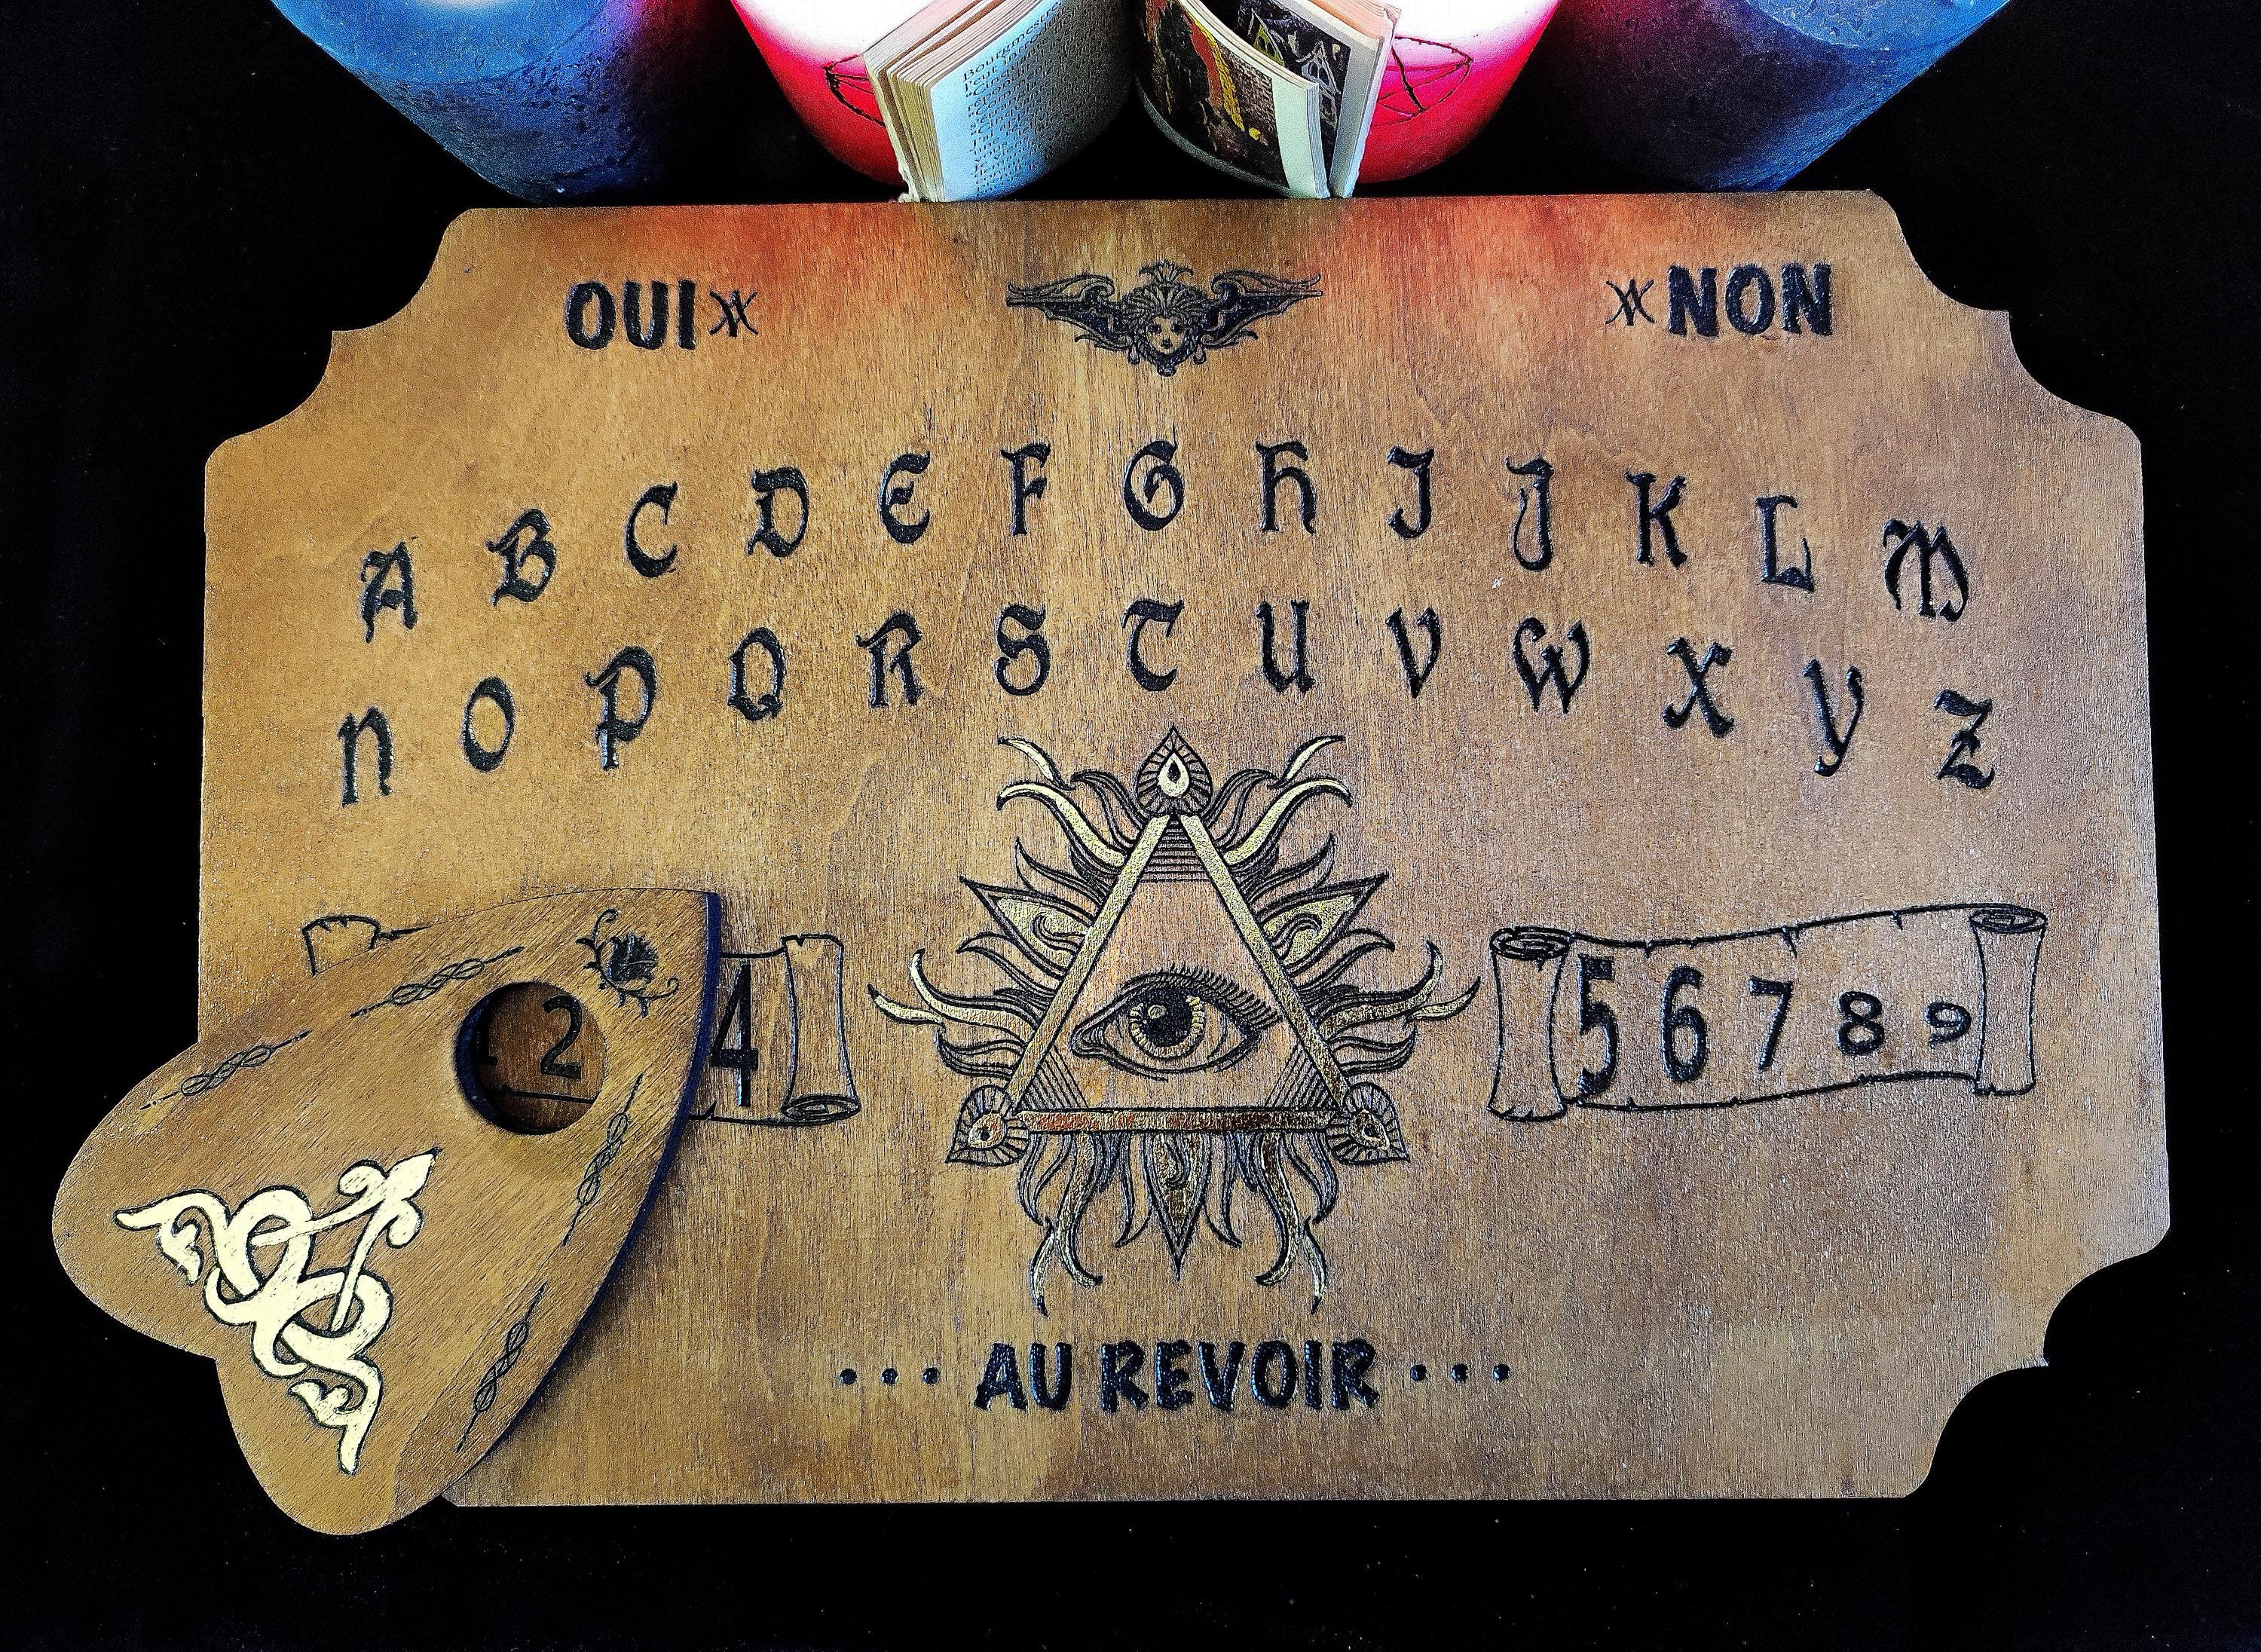 OUI NON
A B C D E F G H I J K L M
N O P Q R S T U V W X Y Z
1 2 4 5 6 7 8 9
... AU REVOIR ...